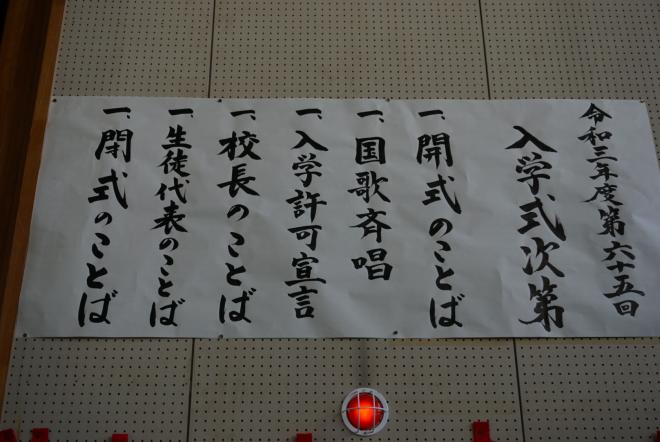 令和三年度第六十五回
入学式次第
一、開式のことば
一、国歌斉唱
一、入学許可宣言
一、校長のことば
一、生徒代表のことば
一、閉式のことば